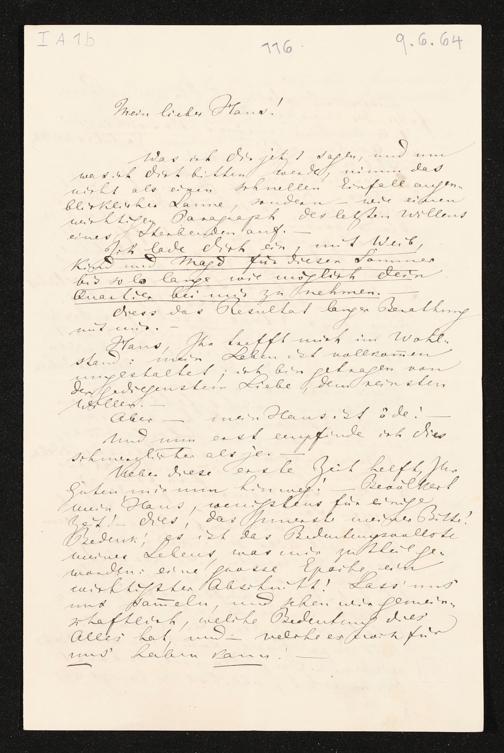 I A 1b
116
9.6.64
Mein lieber Hans!
Was ich Dir jetzt sage, und um
was ich Dich bitten werde, nimm das
nicht als einen schnellen Einfall augen-
blicklicher Laune, sondern – wie einen
wichtigen Paragraph des letzten Willens
eines Sterbenden auf. –
Ich lade Dich ein, mit Weib,
Kind und Magd für diesen Sommer
bis so lange wie möglich dein
Quartier bei mir zu nehmen. –
Diess das Resultat langer Berathung
mit mir. –
Hans, Ihr trefft mich im Wohl-
stand: mein Leben ist vollkommen
umgestaltet; ich bin getragen von
der gediegensten Liebe, dem reinsten
Willen. –
Aber – mein Haus ist öde! –
Und nun erst empfinde ich dies
schmerzlicher als je. –
Ueber diese erste Zeit helft, Ihr
Guten mir nun hinweg! – Bevölkert
mein Haus, wenigstens für einige
Zeit! – Dies, das Innerste meiner Bitte!
Bedenk', es ist das Bedeutungsvollste
meines Lebens, was mir zu Theil ge-
worden: eine grosse Epoche, ein
wichtigster Abschnitt! Lass' uns
uns sammeln, und sehen wir gemein-
schaftlich, welche Bedeutung dies
Alles hat, und – welche es noch für
uns haben kann! –